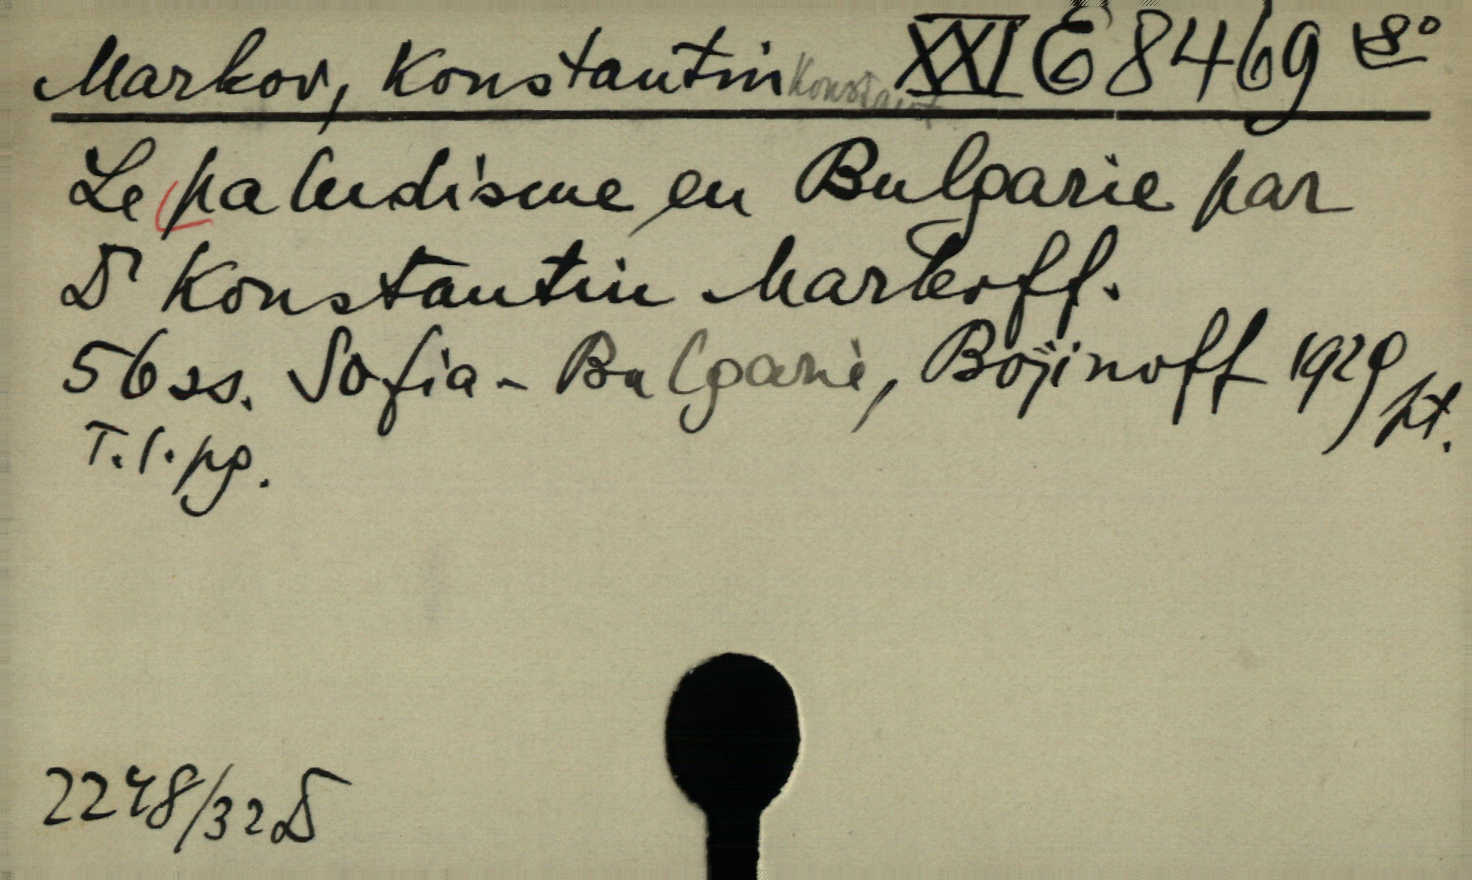 Markov, Konstantin Konstant XXI E 8469 8°
Le paludisme en Bulgarie par
Dr Konstantin Markoff.
56 ss. Sofia - Bulgarie, Bojinoff 1929 pt.
T.l.pg.
2248/32 D